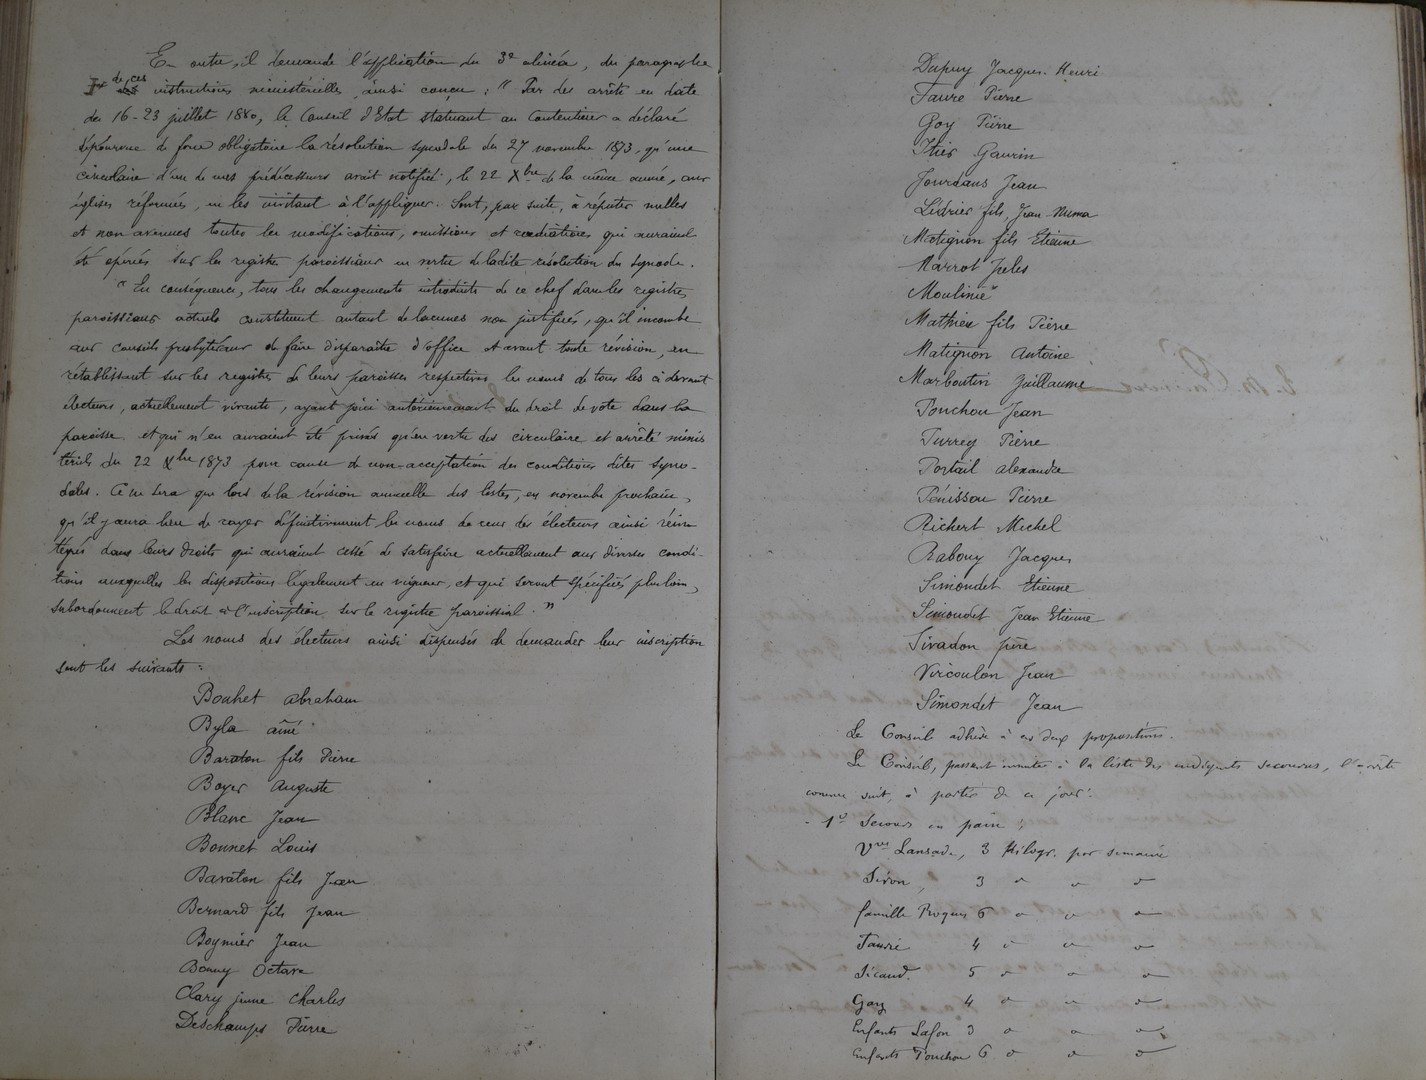 En outre, il demande l'application du 3e alinéa, du paragraphe
Ier de ces instructions ministérielles, ainsi conçu : " Par des arrêts en date
du 16-23 juillet 1880, le Conseil d'Etat statuant au Contentieux a déclaré
dépourvue de force obligatoire la résolution synodale du 27 novembre 1873, qu'une
circulaire d'un de mes prédécesseurs avait notifiée, le 22 Xbre de la même année, aux
églises réformées, en les invitant à l'appliquer. Sont, par suite, à réputer nulles
et non avenues toutes les modifications, omissions et radiations qui auraient
été opérées sur les registres paroissiaux en vertu de ladite résolution du synode.
" En conséquence, tous les changements introduits de ce chef dans les registres
paroissiaux actuels constituent autant de lacunes non justifiées, qu'il incombe
aux conseils presbytéraux de faire disparaître d'office et avant toute révision, en
rétablissant sur les registres de leurs paroisses respectives les noms de tous les ci devant
électeurs, actuellement vivants, ayant joui antérieurement du droit de vote dans la
paroisse et qui n'en auraient été privés qu'en vertu des circulaire et arrêté minis
tériels du 22 Xbre 1873 pour cause de non-acceptation des conditions dites syno-
dales. Ce ne sera que lors de la révision annuelle des listes, en novembre prochain,
qu'il y aura lieu de rayer définitivement les noms de ceux des électeurs ainsi réin
tégrés dans leurs droits qui auraient cessé de satisfaire actuellement aux diverses condi-
tions auxquelles les dispositions légalement en vigueur, et qui seront spécifiées plus loin,
subordonnent le droit à l'inscription sur le registre paroissial. "
Les noms des électeurs ainsi dispensés de demander leur inscription
sont les suivants :
Bouhet abraham
Byla aîné
Baraton fils Pierre
Boyer Auguste
Blanc Jean
Bonnet Louis
Baraton fils Jean
Bernard fils jean
Boymier Jean
Bonny Octave
Clary jeune Charles
Deschamps Pierre
Dupuy Jacques-Henri
Faure Pierre
Goy Pierre
Itier Gaurin
Jourdans Jean
Lidrier fils, Jean Numa
Matignon fils Etienne
Marrot Jules
Moulinié
Mathieu fils Pierre
Matignon Antoine
Marboutin Guillaume
Ponchou Jean
Purrey Pierre
Portail alexandre
Pénissou Pierre
Richert Michel
Rabouy Jacques
Simondet Etienne
Simondet Jean Etienne
Sivadon père
Vircoulon Jean
Simondet Jean
Le Conseil adhère à ces deux propositions.
Le Conseil, passant ensuite à la liste des indigents secourus, l'arrête
comme suit, à partir de ce jour :
1o Secours en pain :
Vves Lansade, 3 Kilogr. par semaine
Siron, 3 " " "
famille Roques 6 " " "
Fauré 4 " " "
Sicaud. 5 " " "
Gay 4 " " "
Enfants Lafon 3 " " "
Enfants Ponchou 6 " " "